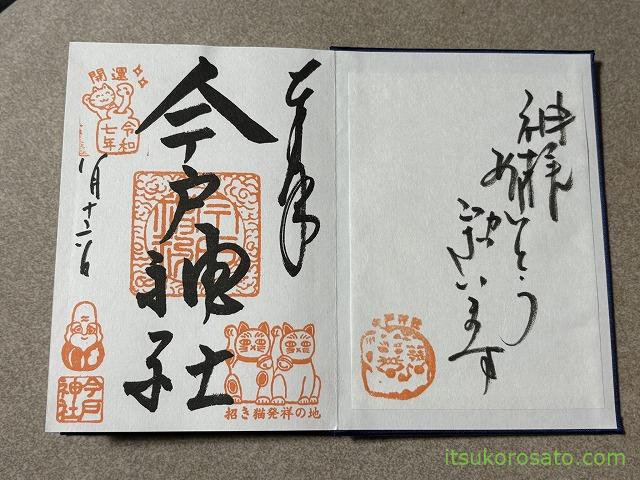 神様
ありがとう
ございます
今戸神社
奉拝
今戸神社
開運
令和
七年
月十六日
今戸
神社
招き猫発祥の地
itsukorosato.com